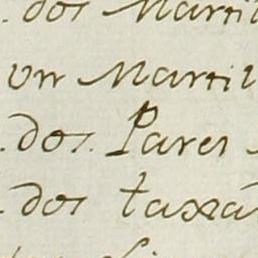 . dos Martil
un Martil
. dos. Pares
. dos taxa